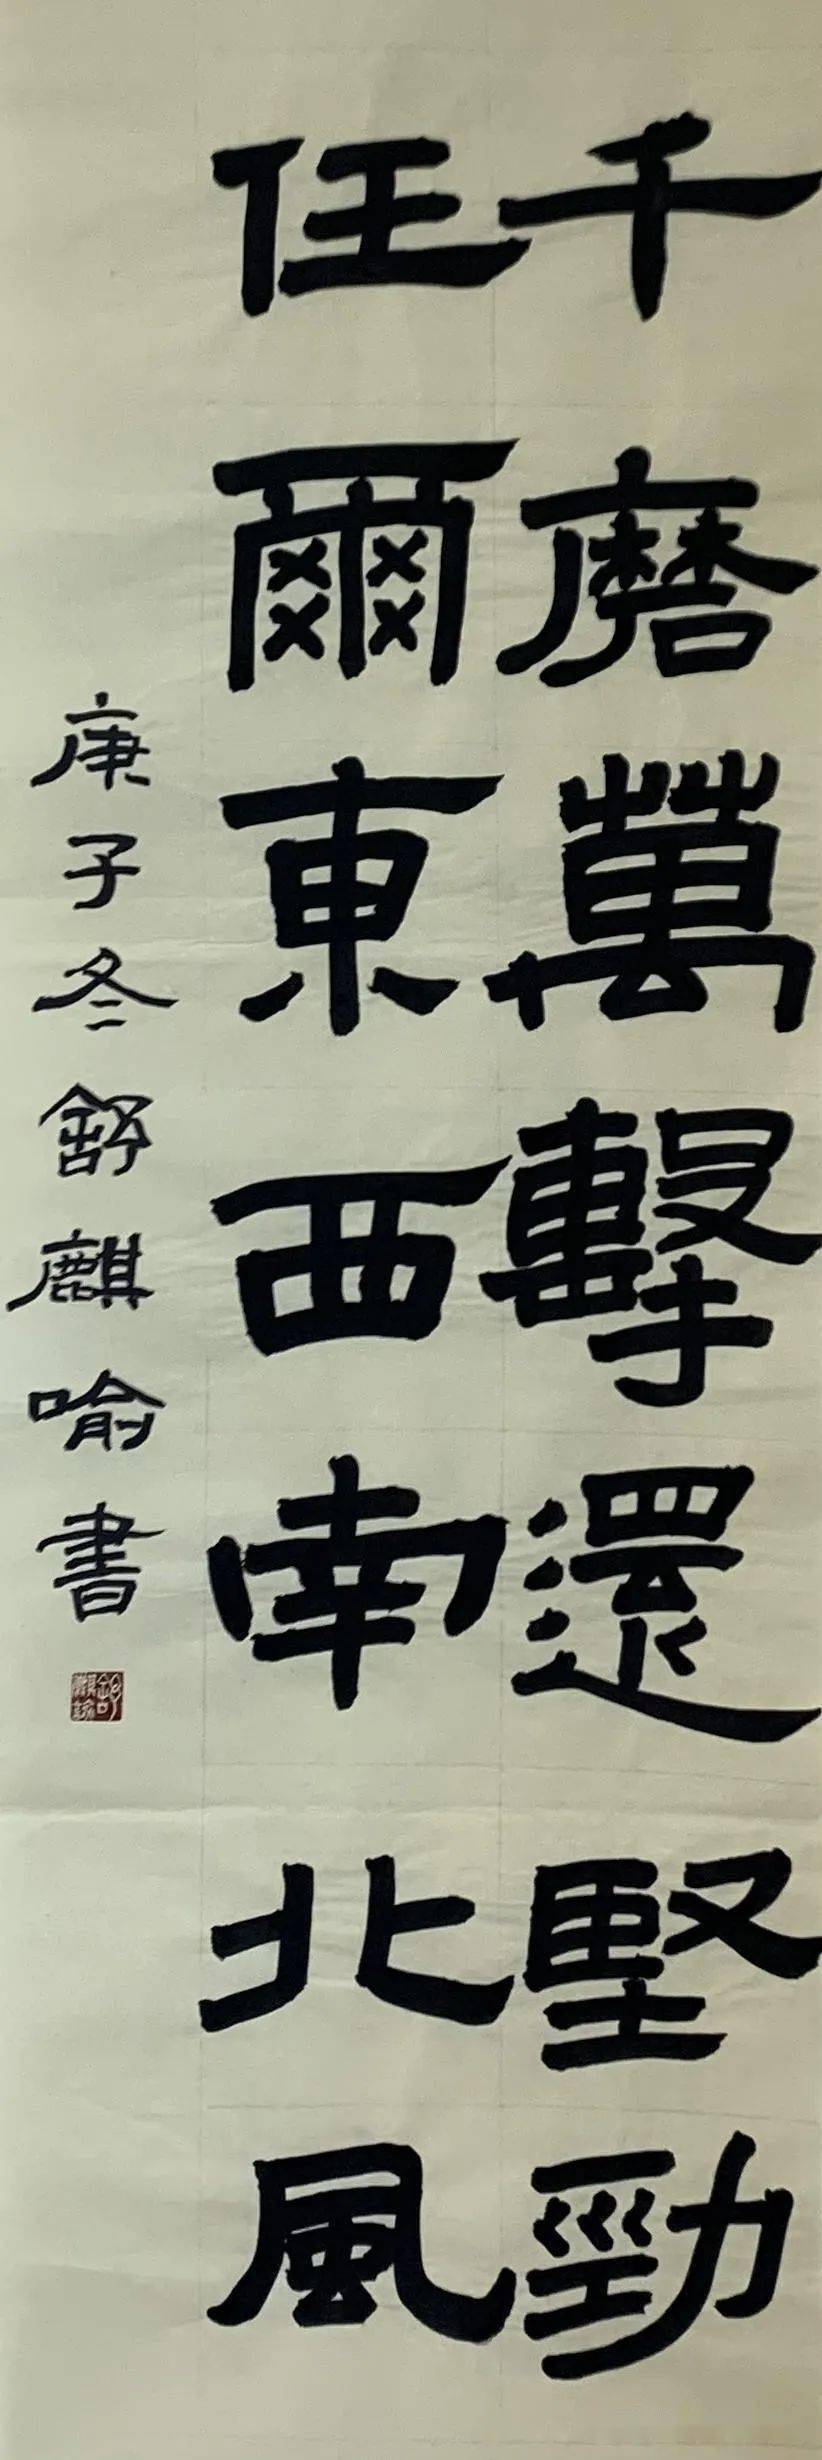 千磨萬擊還堅勁
任爾東西南北風
庚子冬舒麒喻書